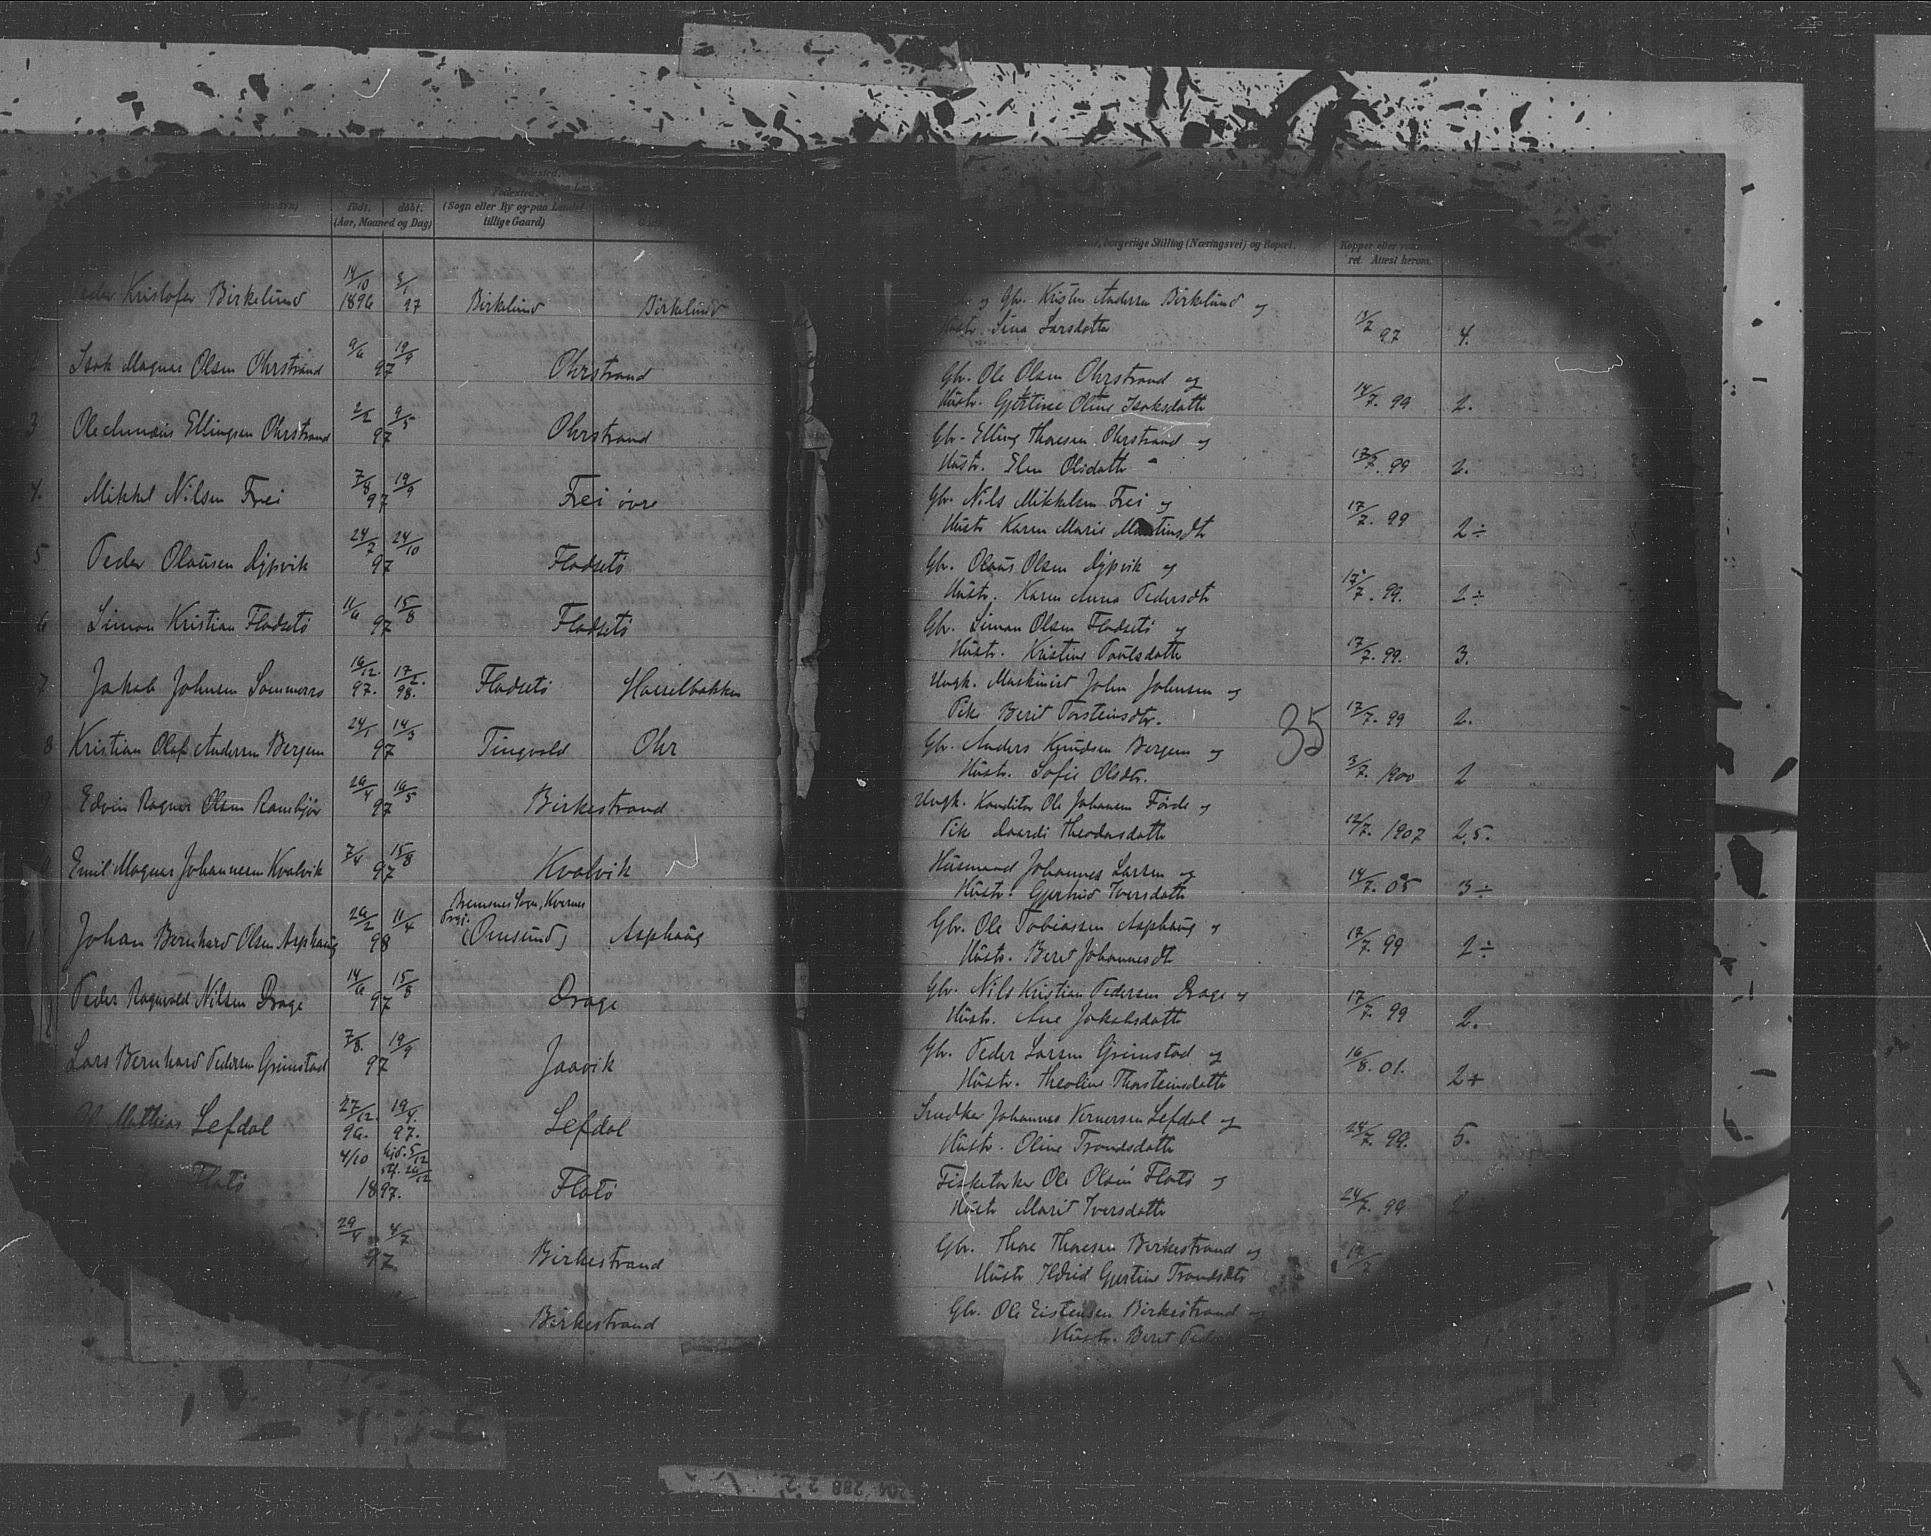 født.
døbt.
(Aar, Maaned og Dag)
Fødested.
(Sogn eller By og paa Landet
tillige Gaard)
borgerlige Stilling (Næringsvei) og Bopæl.
Kopper eller
Attest herom.
Kristofer Birkelund 14/10 1896 3/1 97 Birkelund Birkelund
og Gbr. Kristen Andersen Birkelund og
Hustr. Sina Larsdatter 97 4.
Isak Magnus Olsen Ohrstrand 9/6 19/9 97 Ohrstrand
Gbr. Ole Olsen Ohrstrand og
Hustr. Gjertine Oline Isaksdatter 14/7. 99 2.
3 Ole Ellingsen Ohrstrand 2/2 9/5 97 Ohrstrand
Gbr. Elling Thoresen Ohrstrand og
Hustr. Elen Olsdatter 99 2.
4. Mikkel Nilsen Frei 7/8 19/9 97 Frei övre
Gbr. Nils Mikkelsen Frei og
Hustr Karen Marie Martinsdtr 17/7. 99 2 ÷
5 Peder Olausen Dypvik 24/7 24/10 97 Fladsetö
Gbr. Olaus Olsen Dypvik og
Hustr. Karen Anna Pedersdtr 17/7. 99. 2 ÷
6 Simon Kristian Fladsetö 11/6 15/8 97 Fladsetö
Gbr. Simon Olsen Fladsetö og
Hustr. Kristine Paulsdatter 17/7. 99. 3.
7 Jakob Johnsen Sommerro 16/12. 97. 17/2. 98. Fladsetö Hasselbakken
Ungk. Maskinist John Johnsen og
Pike Berit Torsteinsdtr. 17/7. 99 2.
8 Kristian Olaf Andersen Bergem 24/1 14/3 97 Tingvold Ohr
Gbr. Anders Knudsen Bergem og
Hustr. Sofie Olsdtr. 3/7. 1900 2
35
9 Edvin Ragnar Olsen Ramsbjör 26/4 16/5 97 Birkestrand
Ungk. Konditor Ole Johansen Förde og
Pike Theodorsdatter 12/7. 1907 2,5.
Emil Magnus Johannesen Kvalvik 7/4 15/8 97 Kvalvik
Husmand Johannes Larsen og
Hustr. Gjertrud Iversdatter 14/7. 05 3 ÷
Johan Bernhard Olsen Asphaug 26/2 11/4 98 Bremsnes Sogn, Kvernes
Prgj. (Omsund) Asphaug
Gbr. Ole Tobiassen Asphaug og
Hustr. Beret Johannesdt 17/7. 99 2 ÷
Peder Ragnvald Nilsen Drage 14/6 15/8 97 Drage
Gbr. Nils Kristian Pedersen Drage og
Hustr. Ane Jakobsdatter 17/7. 99 2.
Lars Bernhard Pedersen Grimstad 7/8. 19/9 97 Jaavik
Gbr. Peder Larsen Grimstad og
Hustr. Theoline Thorsteinsdatter 16/8. 01. 2+
Mathias Lefdal 27/12. 96. 19/4. 97. Lefdal
Snedker Johannes Lefdal og
Hustr. Oline Trondsdatter 24/7. 99. 5.
Flatö 4/10 hjd. 5/12 stf. 26/12 1897. Flatö
Fisketorker Ole Olsen Flatö og
Hustr Marit Iversdatter 24/7. 99
29/4 4/7 97 Birkestrand
Gbr. Thore Thoresen Birkestrand og
Hustr Ildrid Gjertine Trondsdtr
Birkestrand
Gbr. Ole Eistensen Birkestrand og
Hustr. Beret